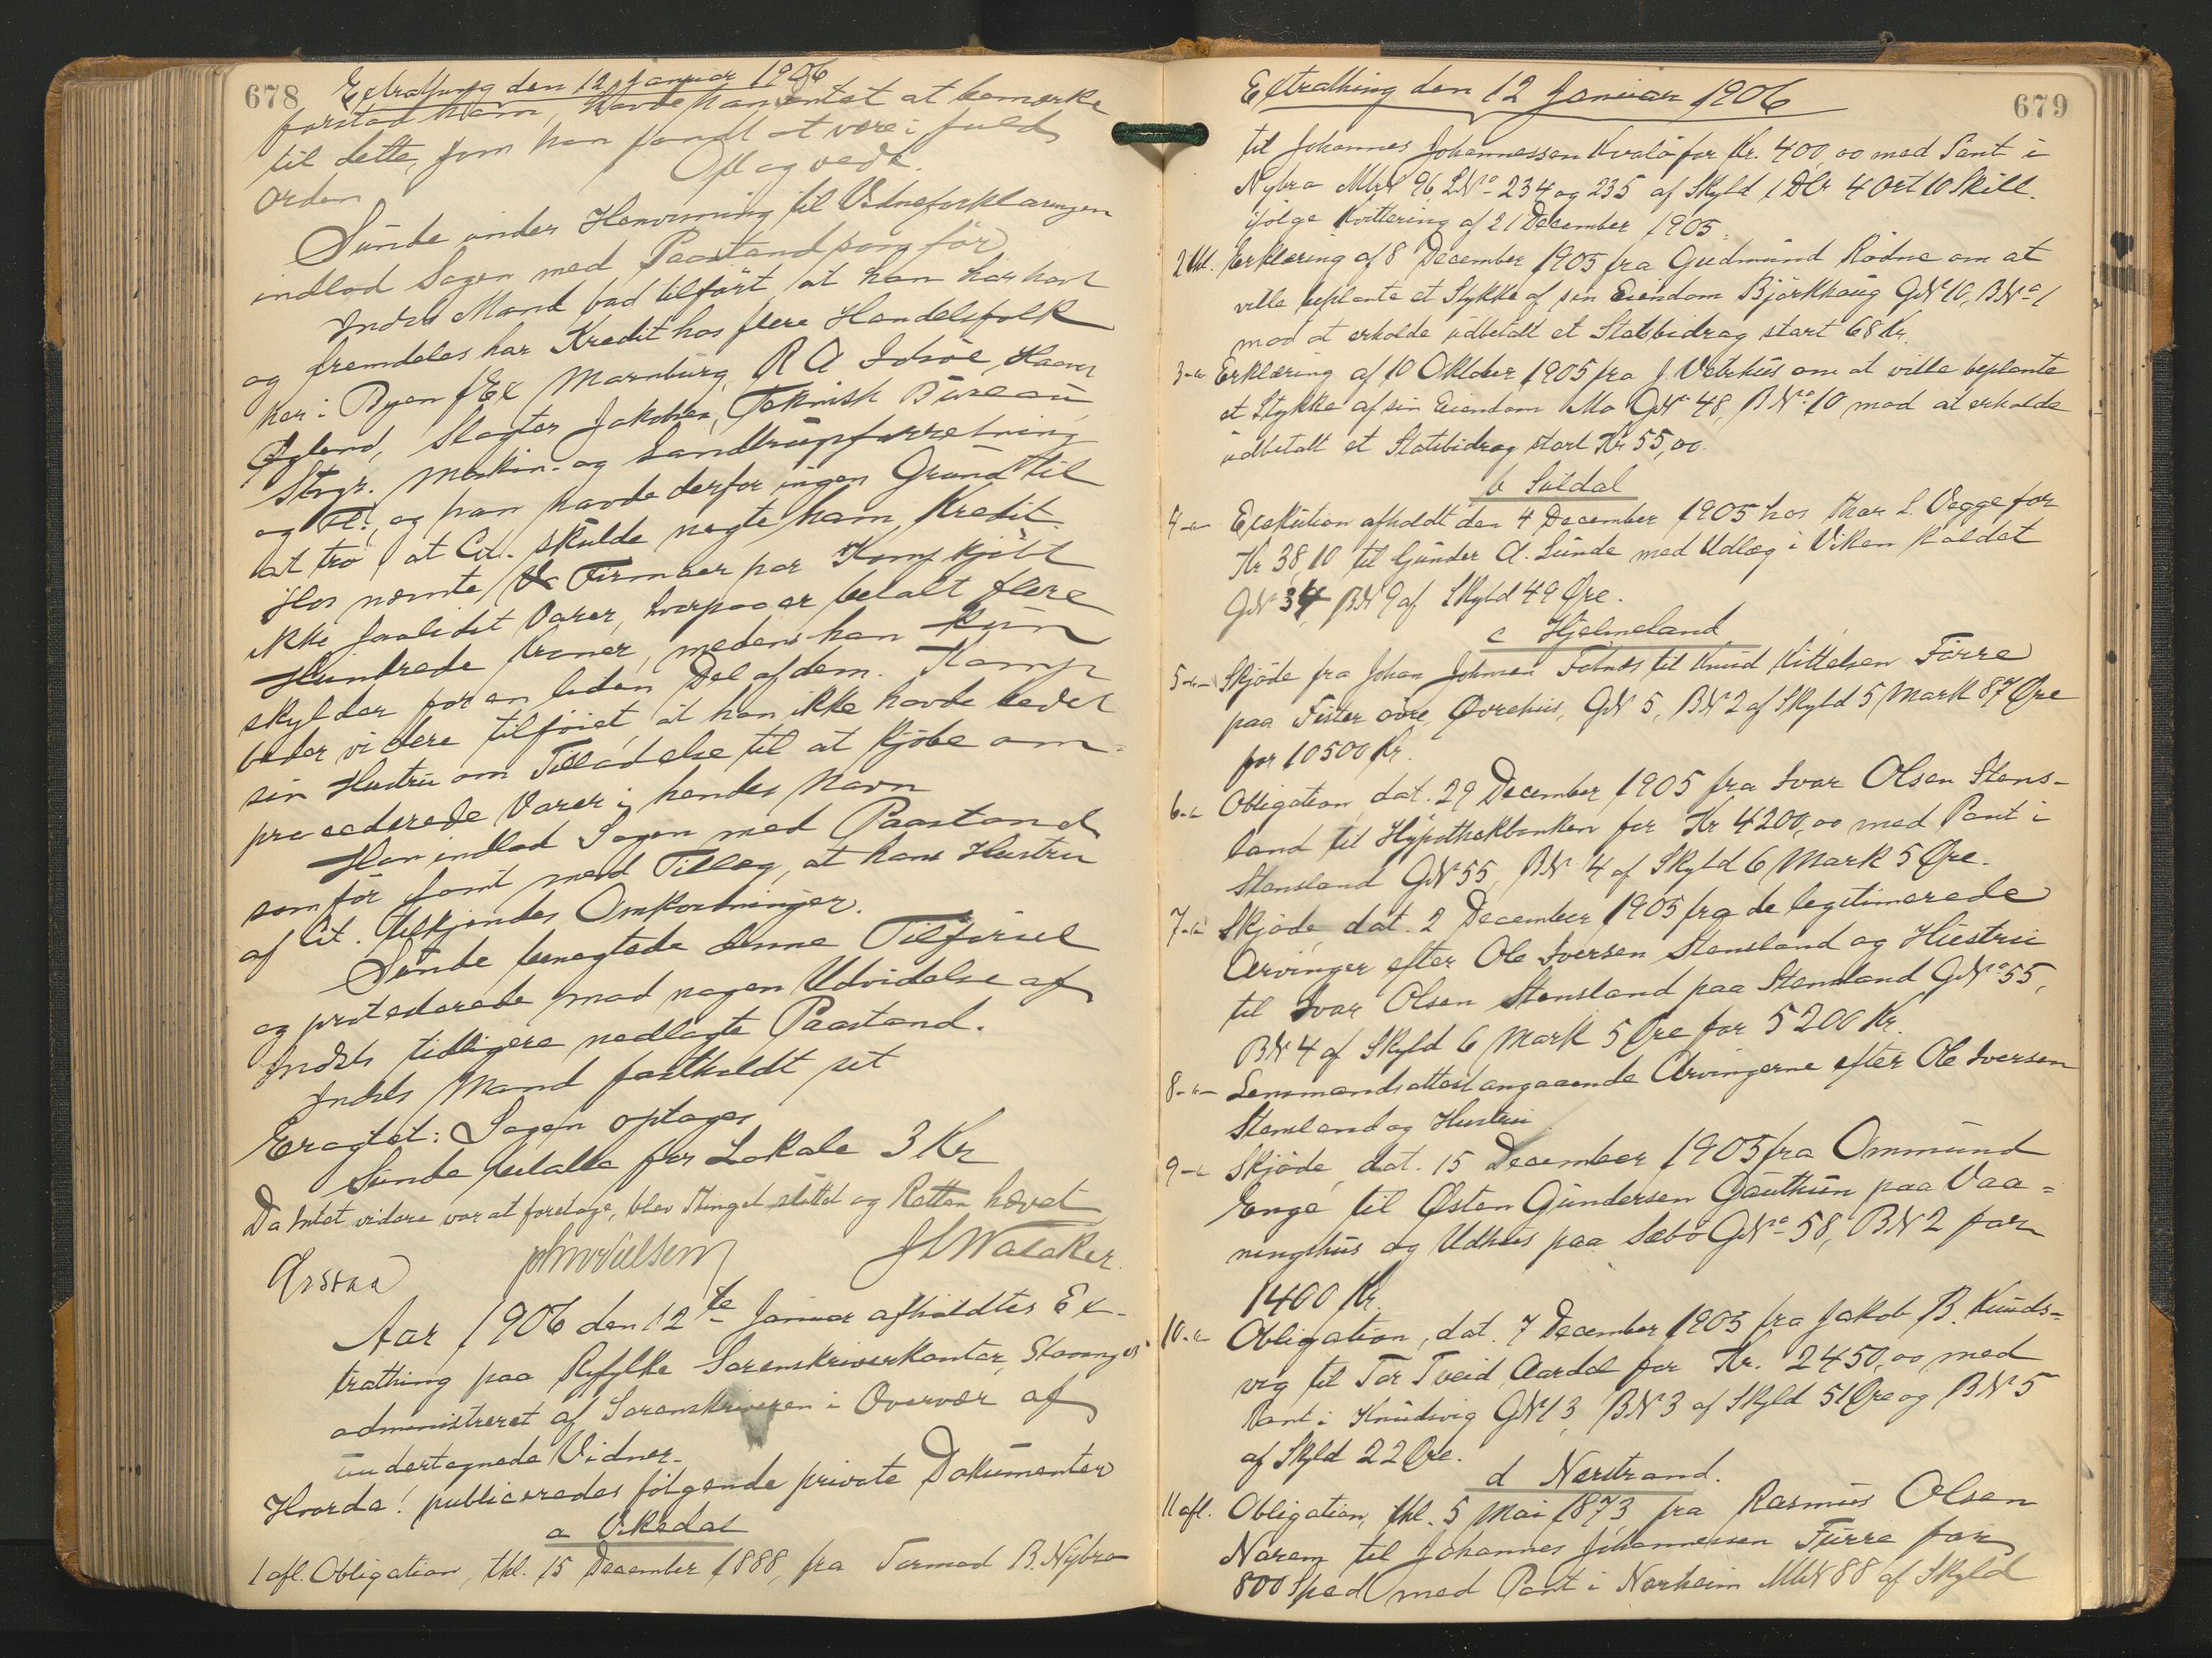 678 Extrathing den 12 Januar 1906
forstod ham, havde han intet at bemærke
til dette, som han fandt at være i fuld
Orden
Opl og vedt.
Sunde under Henvisning til Vidneforklaringen
indlod Sagen med Paastand som før
Indsts Mand bad tilført, at han har havt
og fremdeles har Kredit hos flere Handelsfolk
her i Byen f Ex Marnburg, R A Idsöe,
Øgland, Slagter Jakobsen, Teknisk Bureau
Stvgr. Maskin- og Landbrugsforretning
og Fl., og han havde derfor ingen Grund til
at tro, at Cit. skulde negte ham Kredit.
Hos nævnte Firmaer har Komp kjöbt
ikke faa lidet Varer, hvorpaa er betalt flere
Hundrede Kroner, medens han kun
skylder for en liden Del af dem. Komp
beder videre tilföiet, at han ikke havde bedet
sin Hustru om Tilladelse til at kjöbe om-
procederede Varer i hendes Navn
Han indlod Sagen med Paastand
som för samt med Tillæg, at hans Hustru
af Cit. tilkjendes Omkostninger.
Sunde benegtede denne Tilförsel
og protesterede mod nogen Udvidelse af
Indsts tidligere nedlagte Paastand.
Indsts Mand fastholdt sit
Eragtet: Sagen optages
Sunde betalte for Lokale 3 Kr
Da Intet videre var at foretage, blev Thinget sluttet og Retten hævet
JLWalaker.
Aar 1906 den 12te Januar afholdtes Ex-
trathing paa Ryfylke Sorenskriverkontor, Stavanger
administreret af Sorenskriveren i Overvær af
undertegnede Vidner.
Hvorda: publiceredes fölgende private Dokumenter
a Vikedal
1 afl. Obligation, thl. 15 December 1888, fra Tormod B. Nybro
Extrathing den 12 Januar 1906 679
til Johannes Johannessen Kvalö for Kr. 400,00 med Pant i
Nybro MN 96, LNo 234 og 235 af Skyld 1 Dlr 4 Ort 10 Skill.
ifölge Kvittering af 21 December 1905.
2 thl. Erklæring af 8 December 1905 fra Gudmund Rødne om at
ville beplante et Stykke af sin Eiendom Björkhaug GN 10, BNo 1
mod at erholde udbetalt et Statsbidrag stort 68 Kr.
3 -"- Erklæring af 10 Oktober 1905 fra J. Vetrhus om at ville beplante
et Stykke af sin Eiendom Mo GNo 48, BNo 10 mod at erholde
udbetalt et Statsbidrag stort Kr 55,00.
b Suldal
4 -"- Execution afholdt den 4 December 1905 hos Thor L. Vegge for
Kr 38,10 til Gunder A. Sunde med Udlæg i Viken kaldet
GN 34, BN 9 af Skyld 49 Øre.
c Hjelmeland
5 -"- Skjöde fra Johan Johnsen til Knud Kittelsen Förre
paa Fister övre, Øvrehus, GN 5, BN 2 af Skyld 5 Mark 87 Øre
for 10500 Kr.
6 -"- Obligation, dat. 29 December 1905 fra Ivar Olsen Stens-
land til Hypothekbanken for Kr 4200,00 med Pant i
Stensland GN 55, BN 4 af Skyld 6 Mark 5 Øre.
7 -"- Skjöde, dat. 2 December 1905 fra de legitimerede
Arvinger efter Ole Iversen Stensland og Hustru
til Ivar Olsen Stensland paa Stensland GNo 55,
BN 4 af Skyld 6 Mark 5 Øre for 5200 Kr.
8 -"- Lensmandsattest angaaende Arvingerne efter Ole Iversen
Stensland og Hustru.
9 -"- Skjöde, dat. 15 December 1905 fra Ommund
Enge til Østen Gundersen Gauthun paa Vaa=
ningshus og Udhus paa Sæbö GNo 58, BN 2 for
1400 Kr.
10 -"- Obligation, dat. 7 December 1905 fra Jakob B. Knuds=
vig til Tor Tveid, Aardal for Kr. 2450,00 med
Pant i Knudsvig GN 13, BN 3 af Skyld 51 Øre og BN 5
af Skyld 22 Øre.
d Nærstrand.
11 afl. Obligation, thl. 5 Mai 1873 fra Rasmus Olsen
Narem til Johannes Johannessen Furre for
800 Spd med Pant i Nærheim MN 88 af Skyld